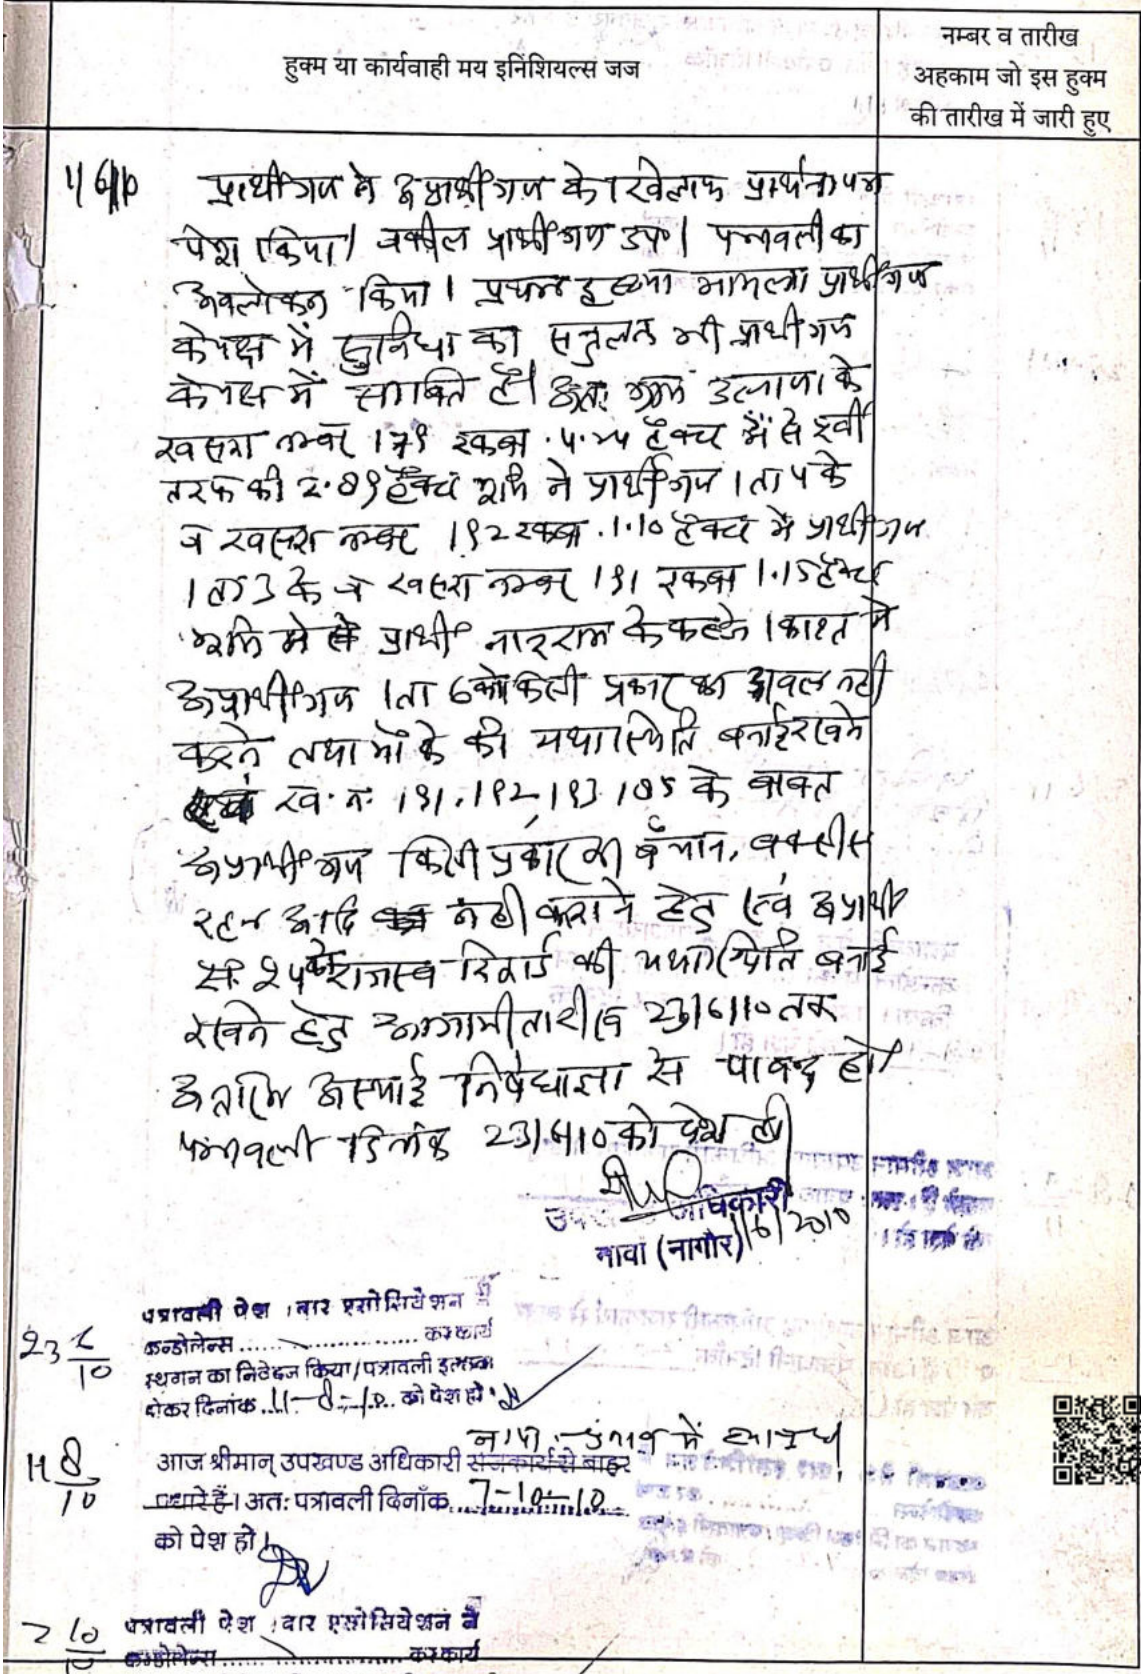 हुक्म या कार्यवाही मय इनिशियल्स जज
नम्बर व तारीख
अहकाम जो इस हुक्म
की तारीख में जारी हुए
1/6/10 प्रार्थीगण ने अप्रार्थीगण के खिलाफ प्रार्थना पत्र
पेश किया। वकील प्रार्थीगण उप०। पत्रावली का
अवलोकन किया। प्रथम दृष्टया मामला प्रार्थीगण
के पक्ष में सुविधा का सन्तुलन भी प्रार्थीगण
के पक्ष में साबित है। अतः ग्राम के
खसरा नम्बर 179 रकबा 4.24 हैक्टर में से
तरफ की 2.09 हैक्टर भूमि में प्रार्थीगण 1 ता 4 के
व खसरा नम्बर 192 रकबा 1.10 हैक्टर में प्रार्थीगण
1 ता 3 के व खसरा नम्बर 191 रकबा 1.15 हैक्टर
भूमि में से प्रार्थी के कब्जे काश्त में
अप्रार्थीगण 1 ता 6 को किसी प्रकार का दखल नही
करने तथा मौके की यथास्थिति बनाई रखने
ख.न. 191, 192, 193, 185 के बाबत
अप्रार्थीगण किसी प्रकार की बैचान, बक्सीस
रहन आदि नही कराने हेतु एवं अप्रार्थी
सं. को राजस्व रिकार्ड की यथास्थिति बनाई
रखने हेतु आगामी तारीख 23/6/10 तक
अन्तरिम अस्थाई निषेधाज्ञा से पाबन्द हो।
पत्रावली दिनांक 23/6/10 को पेश हो।
अधिकारी
नावां (नागौर) 1/6/2010
पत्रावली पेश। बार एसोसियेशन ने
23 6/10 कन्डोलेन्स.................... कर कार्य
स्थगन का निवेदन किया/पत्रावली
होकर दिनांक 11-8-10 को पेश हो।
में
11 8/10 आज श्रीमान् उपखण्ड अधिकारी राजकार्य से बाहर
पधारे हैं। अतः पत्रावली दिनाँक 7-10-10
को पेश हो।
7 10/10 पत्रावली पेश। बार एसोसियेशन ने
कन्डोलेन्स.................... कर कार्य